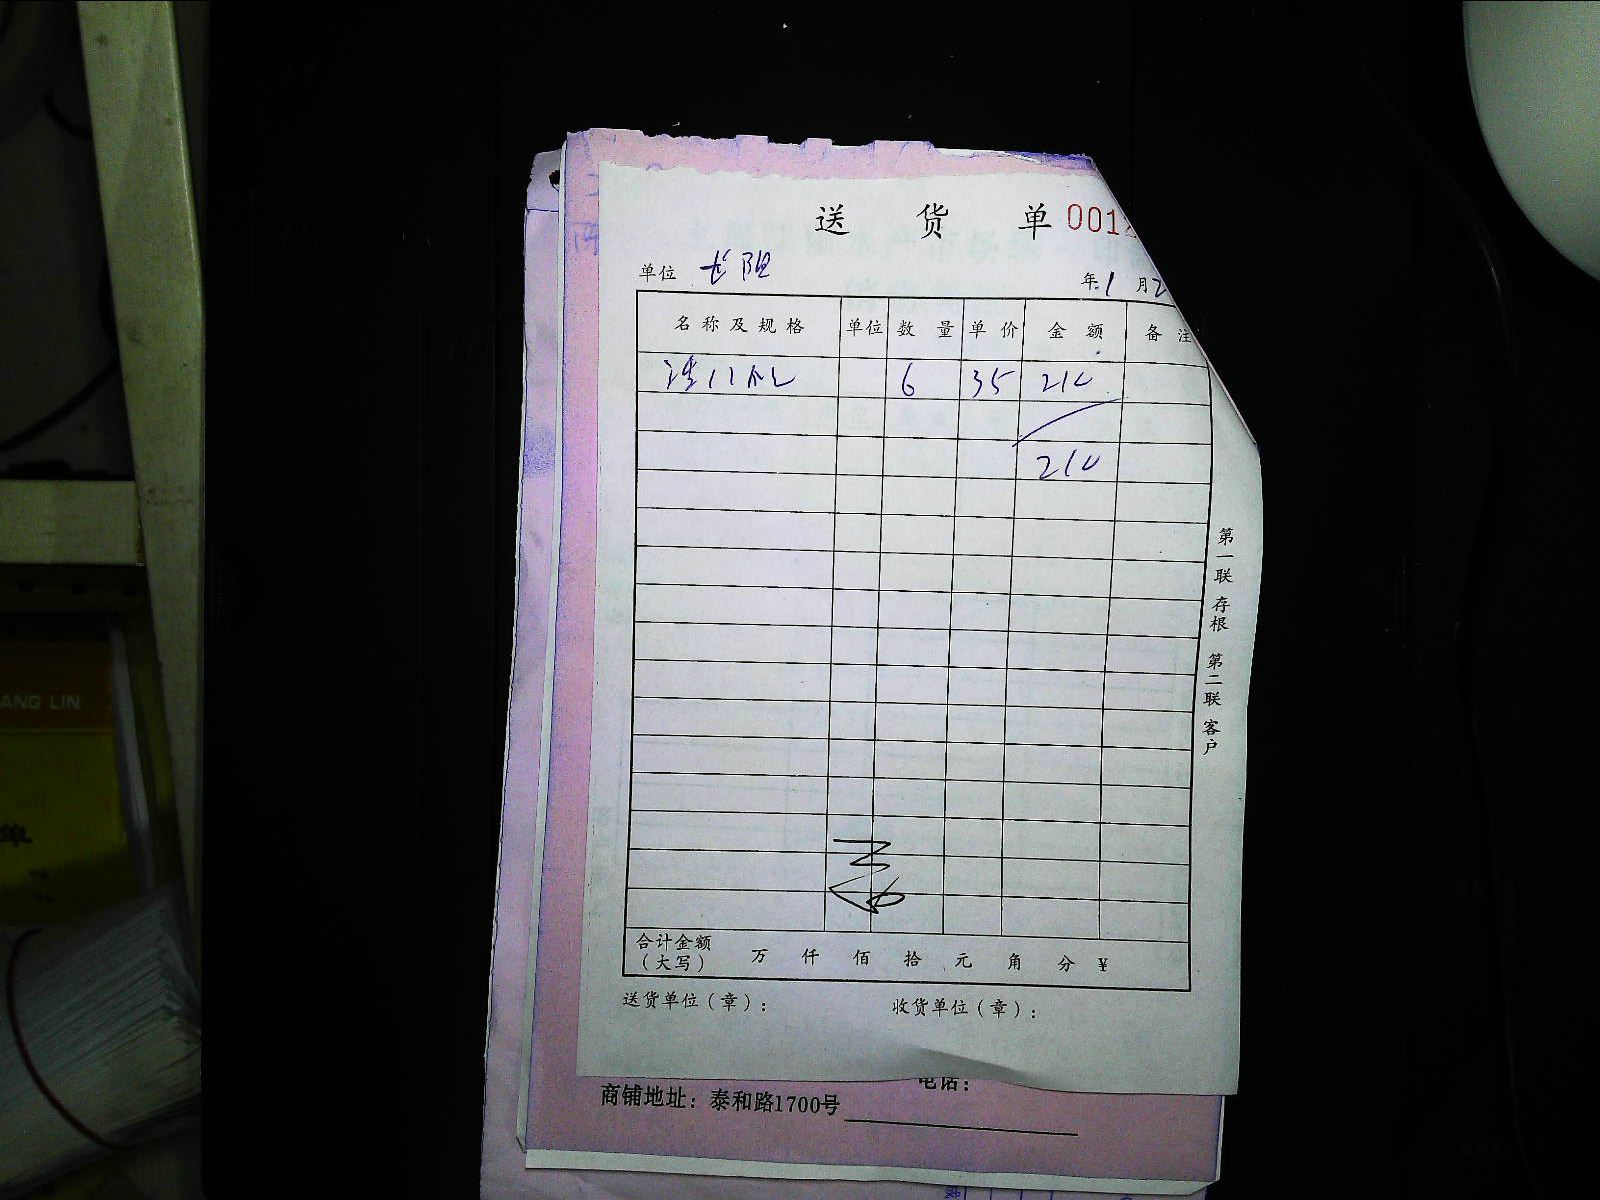 送 货 单 001
单位 长阳 年 1 月 2
名称及规格 单位 数量 单价 金额 备注
6 35 210
210
第一联 存根 第二联 客户
合计金额
（大写） 万 仟 佰 拾 元 角 分 ¥
送货单位（章）： 收货单位（章）：
电话：
商铺地址：泰和路1700号
ANG LIN
单